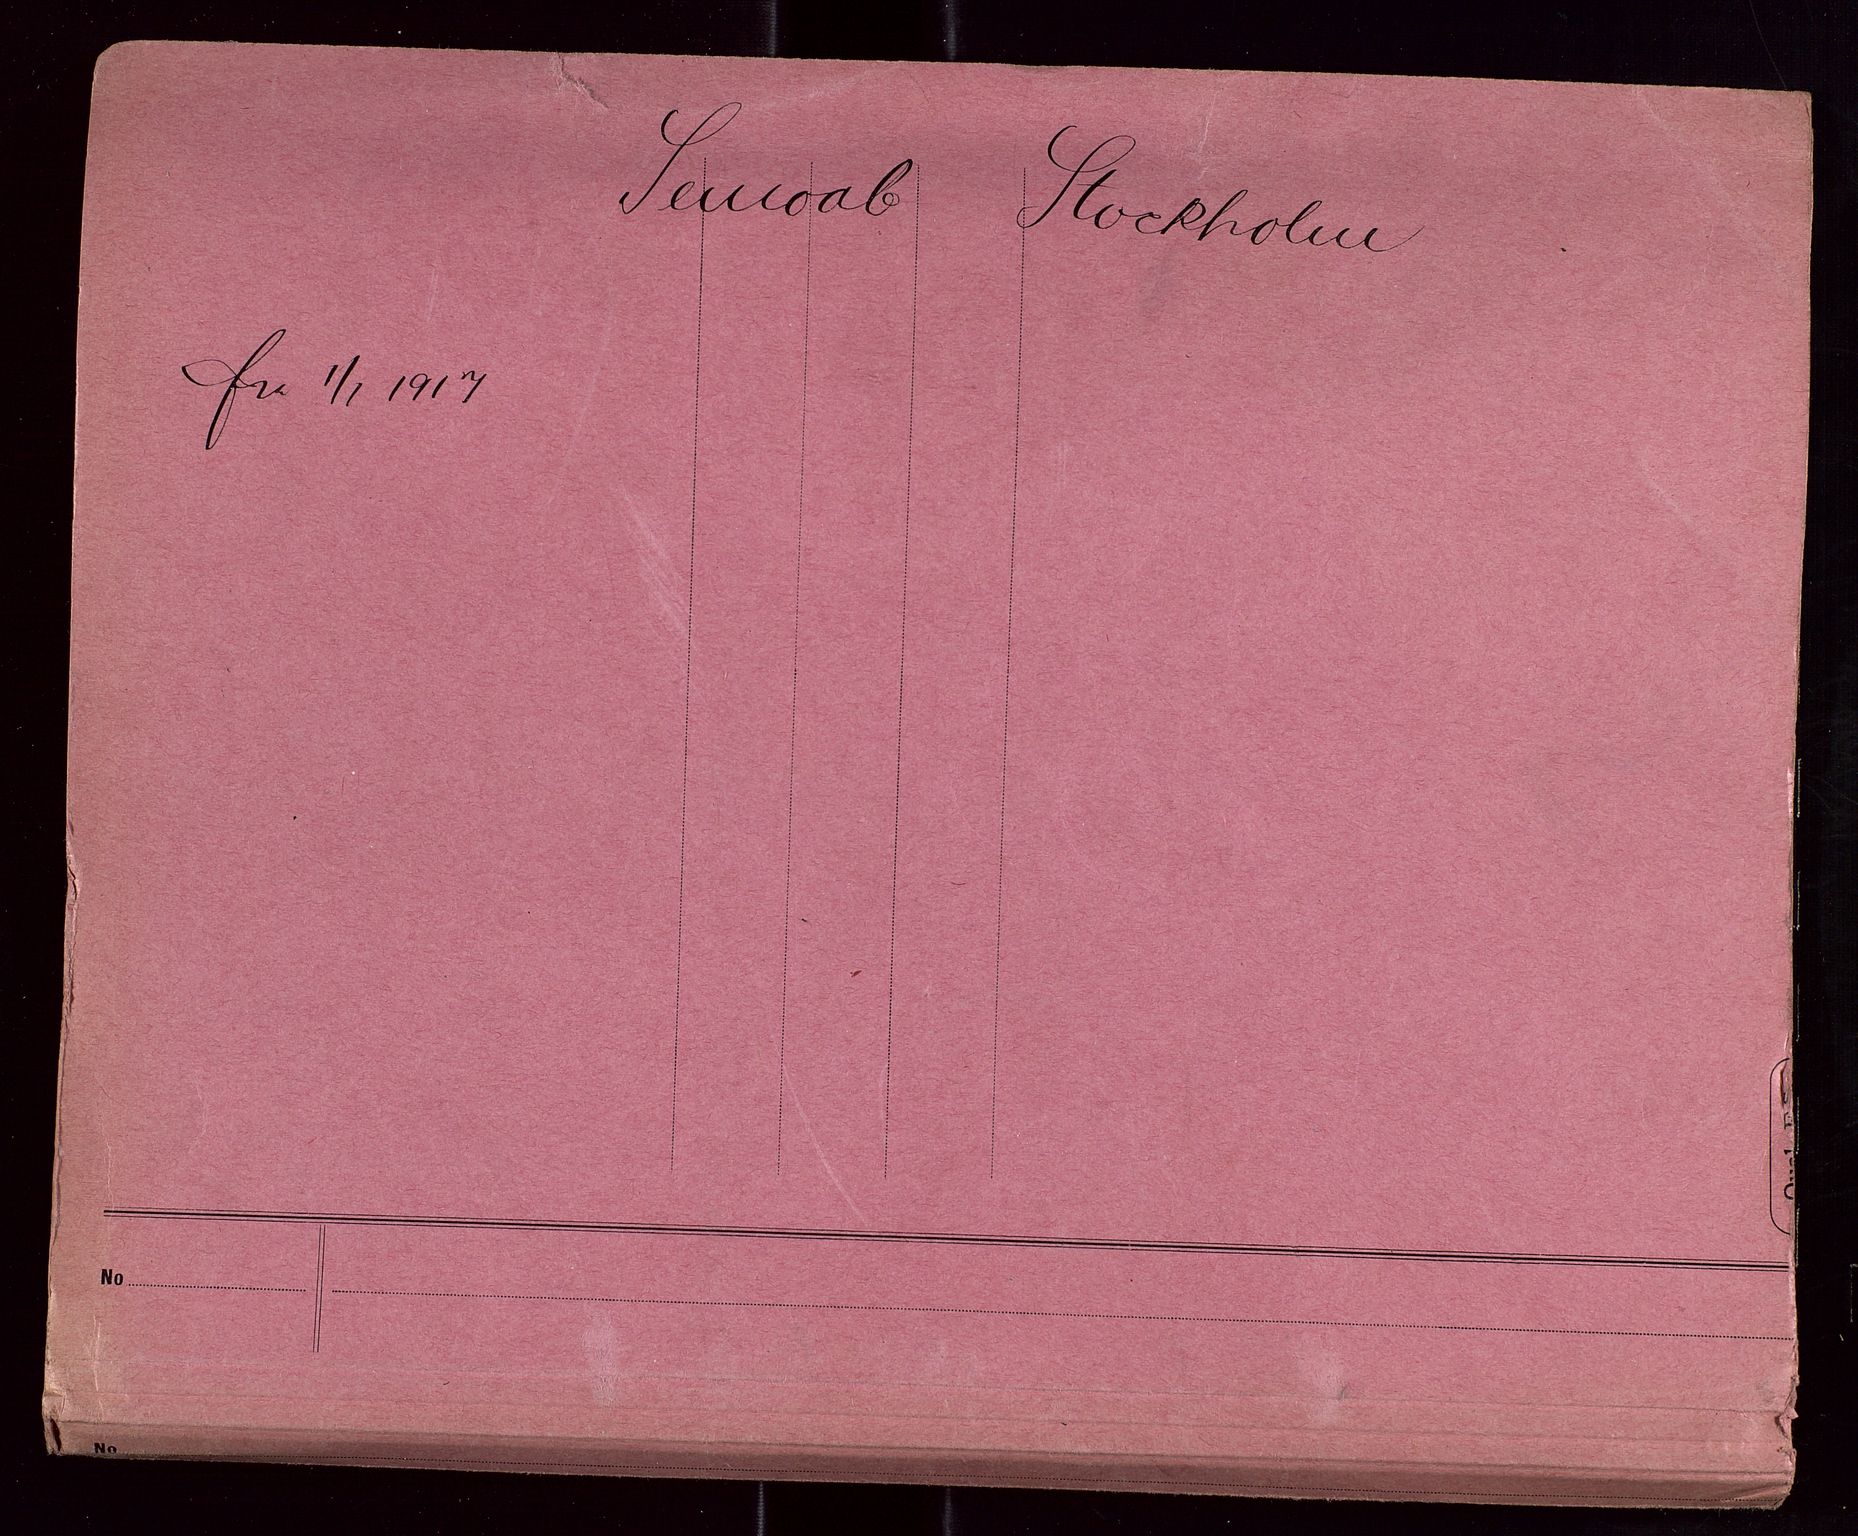 Semoab Stockholm
fra 1/1 1917
No
No